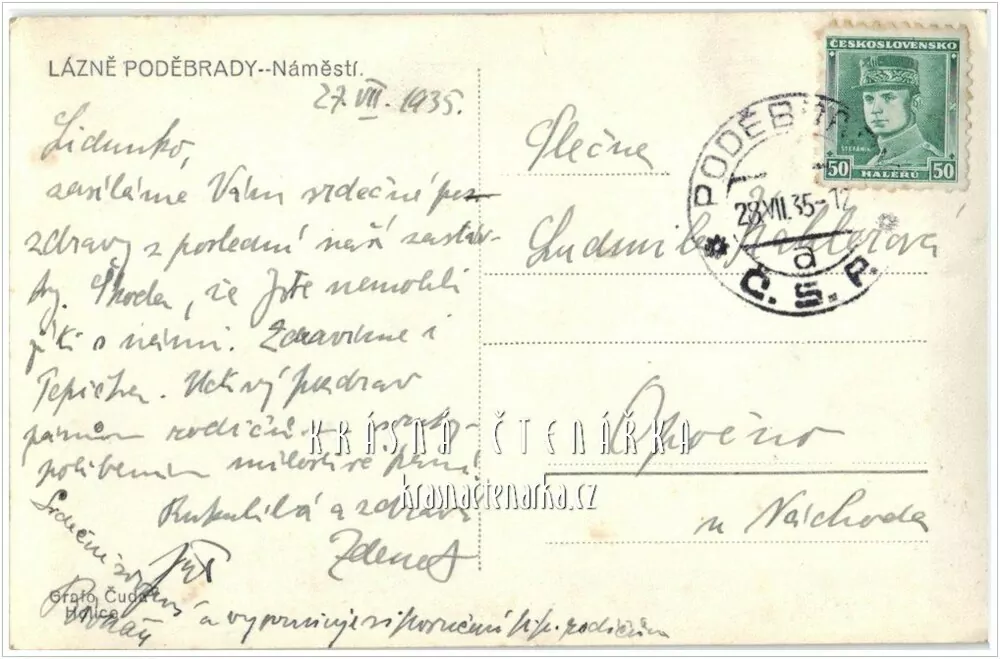 LÁZNĚ PODĚBRADY--Náměstí.
27. VII. 1935.
Lidunko,
zasíláme Vám srdečné po-
zdravy z poslední naší zastáv-
ky. Škoda, že Jste nemohli
jíti s námi. Zdravíme i
Uctivý pozdrav
rodičům
políbením milostivé paní
Rukulíbá a zdraví
Zdenek
Srdečný
a vyporučuje
rodičům
Grafo Čuda
Holice
ČESKOSLOVENSKO
ŠTEFÁNIK
50 HALÉŘŮ 50
PODĚBRADY
28.VII.35-12
a
Č.S.P.
Slečna
Ludmila
Opočno
u Náchoda
KRÁSNÁ ČTENÁŘKA
krasnactenarka.cz